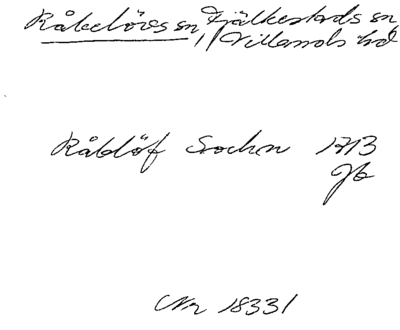 Råbelövs sn, Fjälkestads sn
Villands hd
Råblöf Sochn 1713
Jb
Nr 18331